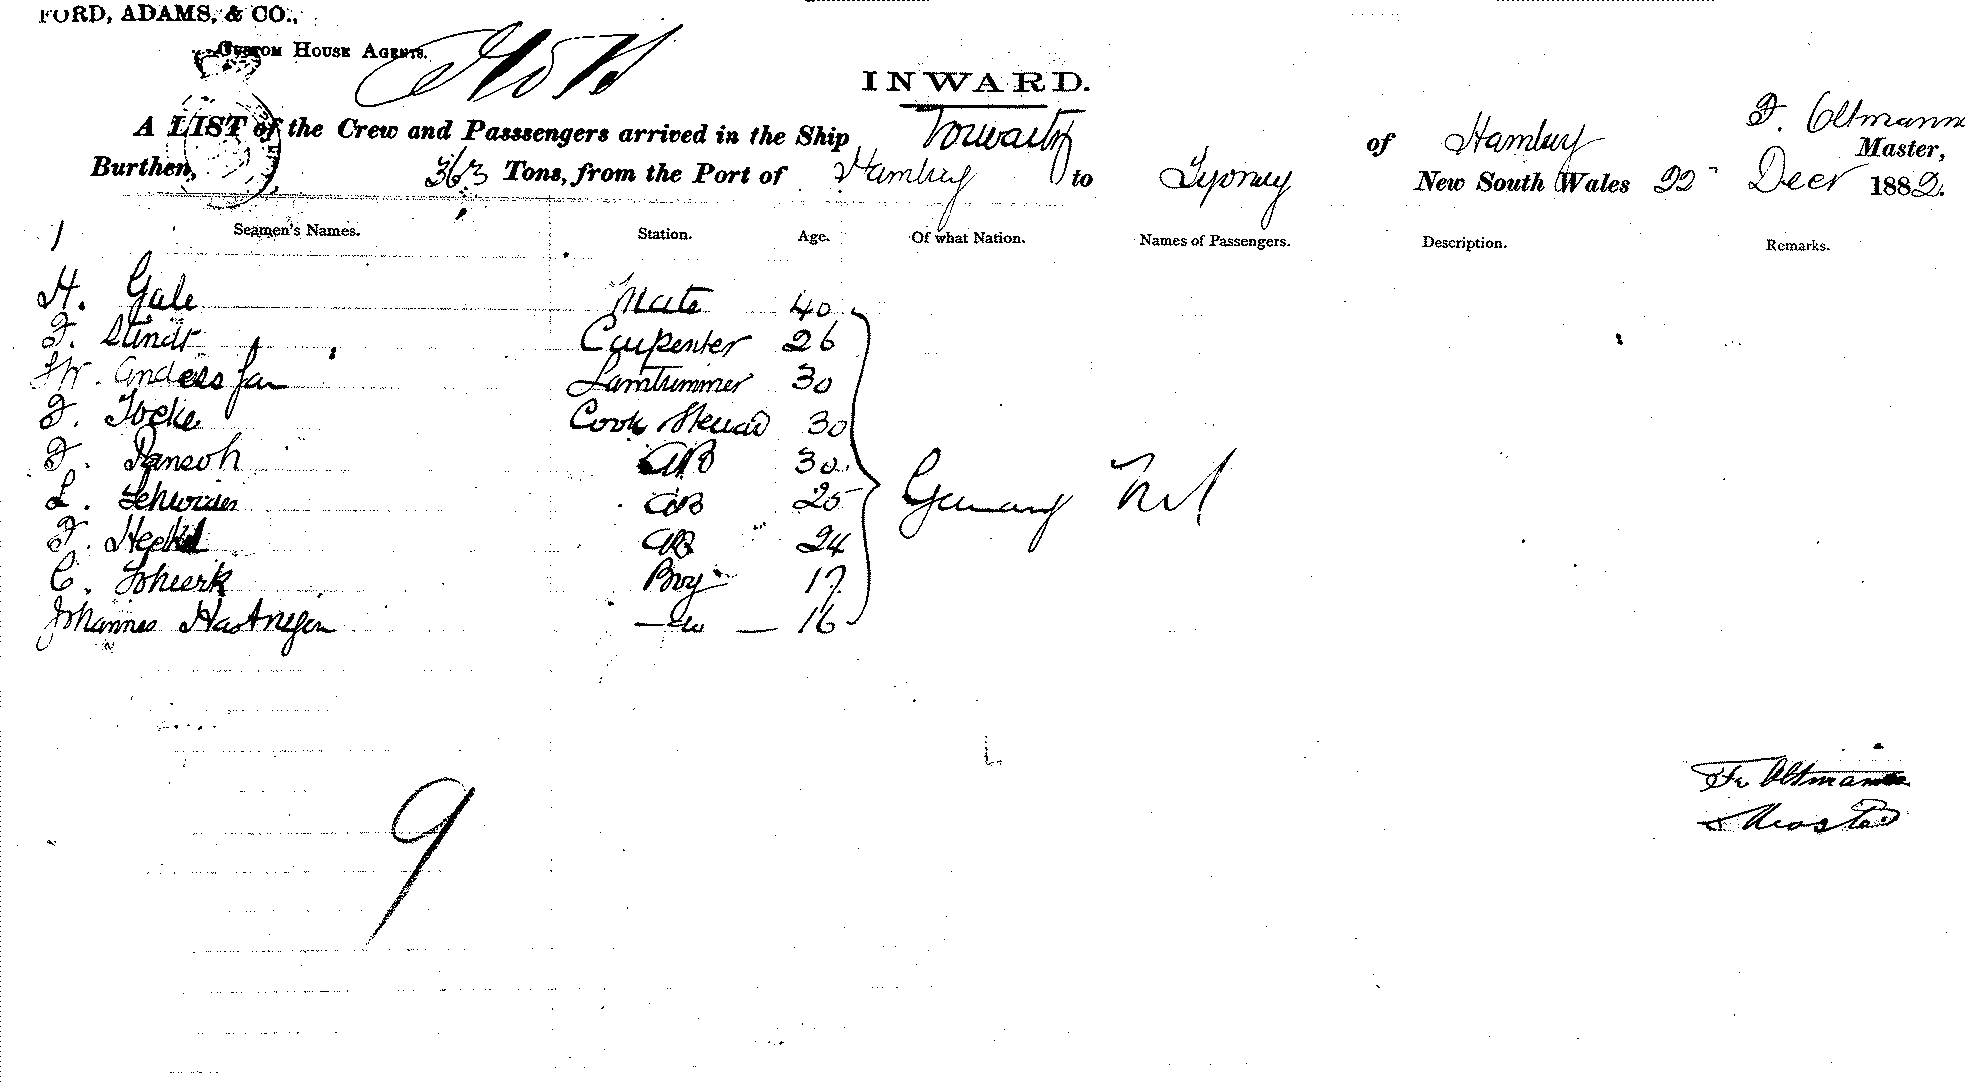 FORD, ADAMS, & CO.,
CUSTOM HOUSE AGENTS.
INWARD.
F. Oltmann
A LIST of the Crew and Passsengers arrived in the Ship Vorwarts of Hamburg Master,
Burthen, 363 Tons, from the Port of Hamburg to Sydney New South Wales 22 Decr 1882.
1
Seamen's Names. Station. Age. Of what Nation. Names of Passengers. Description. Remarks.
H. Gale Mate 40
F. Stindt Carpenter 26
30
F. Tocke Cook Steward 30
F. Pansch AB 30
L. AB 25
F. AB 24
Germany Nil
C. Boy 17
Johannes do 16
Fr Oltmann
Master
9